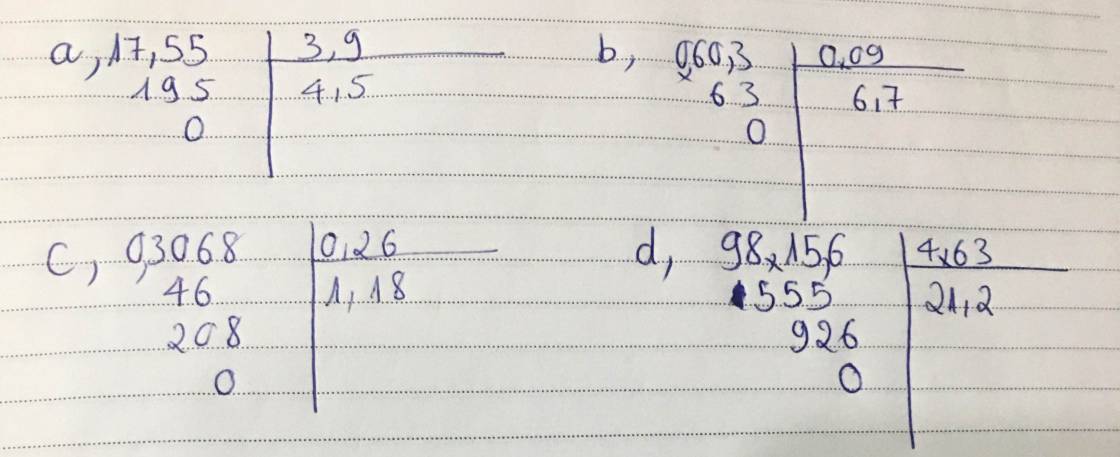 a, 17,55 3,9
195 4,5
0
b, 0,60,3 0,09
63 6,7
0
c, 0,3068 0,26
46 1,18
208
0
d, 98,15,6 4,63
555 21,2
926
0